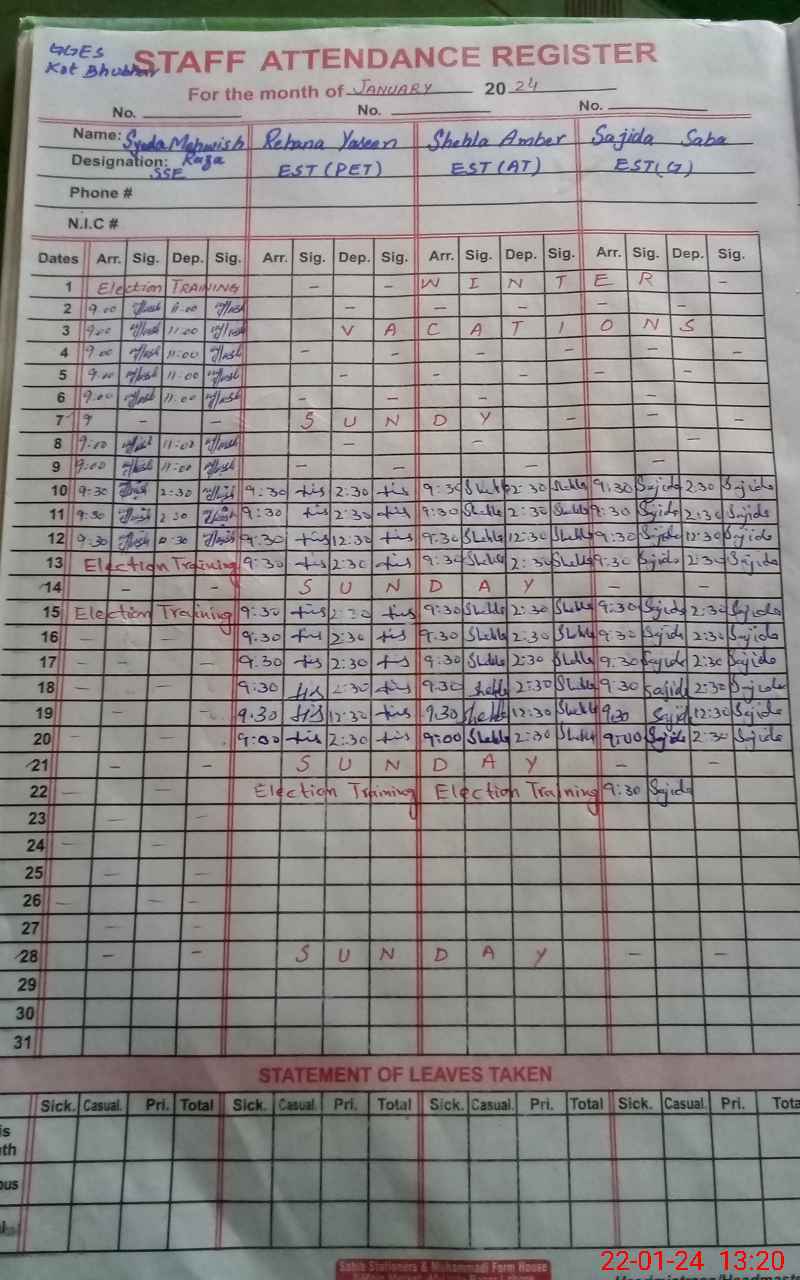 GGES
Kot Bhubhar
STAFF ATTENDANCE REGISTER
For the month of JANUARY 20 24
No. No. No.
Name: Syeda Mehwish Raza Rehana Yaseen Shehla Amber Sajida Saba
Designation: SSE EST (PET) EST (AT) EST(G)
Phone #
N.I.C #
Dates Arr. Sig. Dep. Sig. Arr. Sig. Dep. Sig. Arr. Sig. Dep. Sig. Arr. Sig. Dep. Sig.
1 Election TRAINING - - W I N T E R -
2 9.00 11:00 - - - - -
3 9:00 11:00 V A C A T I O N S
4 9.00 11:00 - - - - -
5 9.00 11:00 - - - - -
6 9:00 11:00 - - - -
7 9 - - S U N D Y - -
8 9:00 11:00 - - -
9 9:00 11:00 - -
10 9:30 2:30 9:30 2:30 9:30 Shehla 2:30 Shehla 9:30 Sajida 2:30 Sajida
11 9:30 2:30 9:30 2:30 9:30 Shehla 2:30 Shehla 9:30 Sajida 2:30 Sajida
12 9:30 9:30 12:30 9:30 Shehla 12:30 Shehla 9:30 Sajida 12:30 Sajida
13 Election Training 9:30 2:30 9:30 Shehla 2:30 Shehla 9:30 Sajida 2:30 Sajida
14 - - S U N D A Y - -
15 Election Training 9:30 2:30 9:30 Shehla 2:30 Shehla 9:30 Sajida 2:30 Sajida
16 - - 9:30 2:30 9:30 Shehla 2:30 Shehla 9:30 Sajida 2:30 Sajida
17 - - 9.30 2:30 9:30 Shehla 2:30 Shehla 9:30 Sajida 2:30 Sajida
18 - - 9:30 2:30 9:30 Shehla 2:30 Shehla 9:30 Sajida 2:30 Sajida
19 - - 9.30 12:30 9.30 Shehla 12:30 Shehla 9:30 Sajida 12:30 Sajida
20 - - 9:00 2:30 9:00 Shehla 2:30 Shehla 9:00 Sajida 2:30 Sajida
21 - - S U N D A Y - -
22 - - Election Training Election Training 9:30 Sajida
23 - -
24 - -
25 - -
26 - -
27 - -
28 - - S U N D A Y - -
29
30
31
STATEMENT OF LEAVES TAKEN
Sick. Casual. Pri. Total Sick. Casual. Pri. Total Sick. Casual. Pri. Total Sick. Casual. Pri. Tota
is
th
ous
Sabib Stationers & Muhammadi Form House
22-01-24 13:20